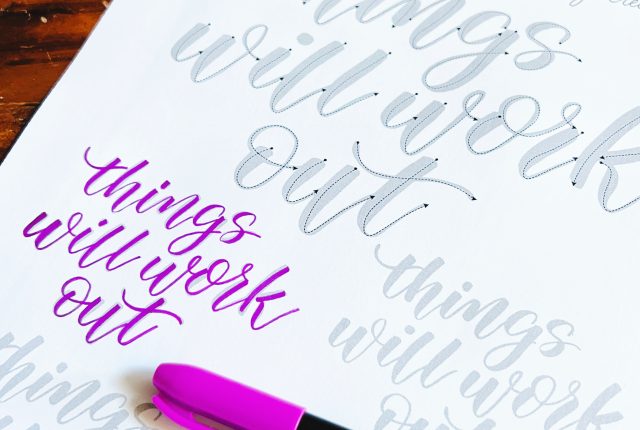 things
will work
out
things
will work
out
things
will work
out
things